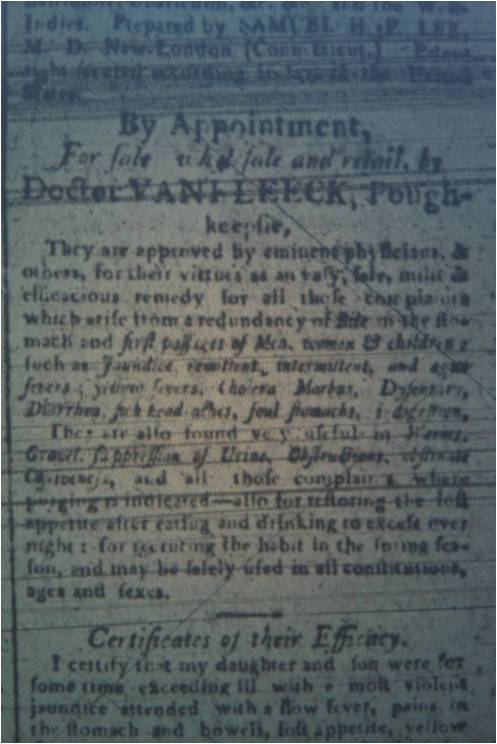 Indies. Prepared by SAMUEL H. P. LEE,
M. D. New-London (Connecticut.) Patent
right secured according to law of the United
States.
By Appointment,
For ſale ſale and retail, by
Doctor Pough-
keepſie,
They are approved by eminent phyſicians, &
others, for their virtues as an eaſy, ſafe, mild &
efficacious remedy for all thoſe complaints
which ariſe from a redundancy of Bile in the ſto-
mach and firſt paſſages of Men, women & children;
ſuch as Jaundice, remittent, intermittent, and ague
fevers; yellow fevers, Cholera Morbus, Dyſentary,
Diarrhea, ſick head aches, foul ſtomachs, i digeſtion,
They are alſo found very uſeful in Worms,
Gravel, ſuppreſſion of Urine, Obſtructions, obſtinate
Coſtiveneſs, and all thoſe complaints where
purging is indicated—alſo for reſtoring the loſt
appetite after eating and drinking to exceſs over
night; for recruting the habit in the ſpring ſea-
ſon, and may be ſafely uſed in all conſtitutions,
ages and ſexes.
Certificates of their Efficacy.
I certify that my daughter and ſon were for
ſome time exceeding ill with a moſt violent
jaundice attended with a ſlow fever, pains in
the ſtomach and bowels, loſt appetite, yellow